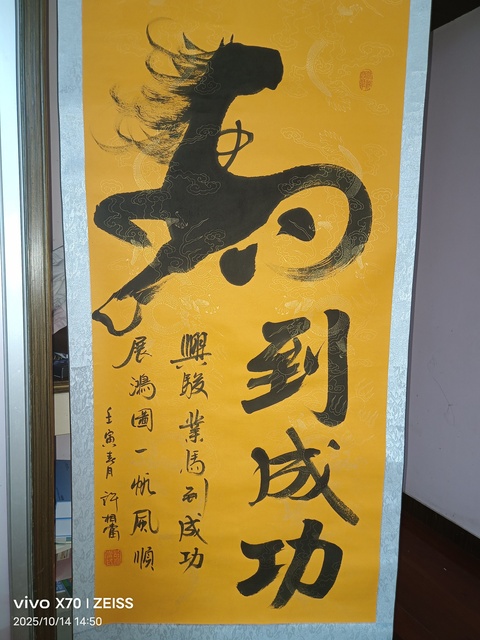 馬到成功
興駿業馬到成功
展鴻圖一帆風順
壬寅春月 許相當
vivo X70 | ZEISS
2025/10/14 14:50